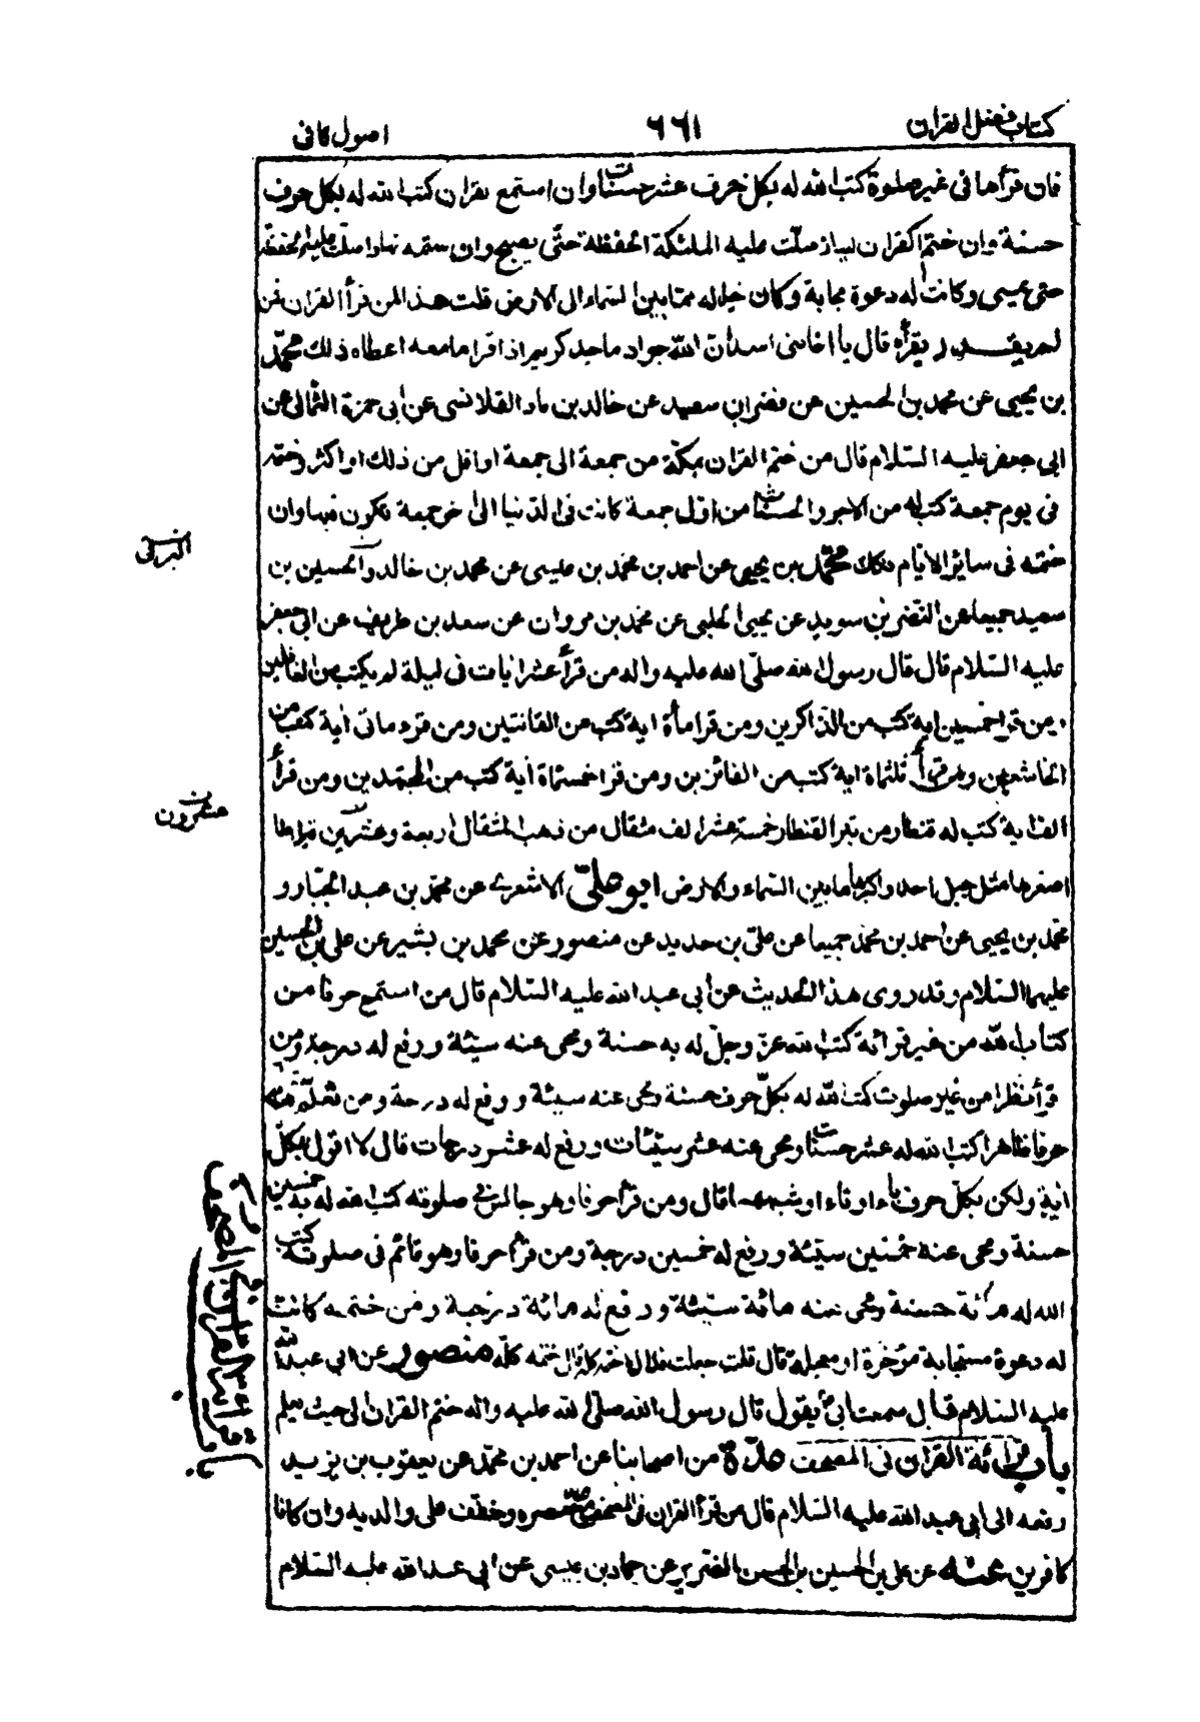 كتاب فضل القران ٦٦١ اصول كافى
فان قرأها فى غير صلوة كتب الله له بكل حرف عشر حسنات وان استمع القران كتب الله له بكل حرف
حسنة وان ختم القران ليلا صلّت عليه الملئكة الحفظة حتّى يصبح وان ختمه نهارا صلت عليه الحفظة
حتى يمسى وكانت له دعوة مجابة وكان خيرا له ممّا بين السّماء الى الارض قلت هذا لمن قرأ القران فمن
لم يقرأه قال يا اخا بنى اسد انّ الله جواد ماجد كريم اذا قرا ما معه اعطاه ذلك محمّد
بن يحيى عن محمد بن الحسين عن نضر بن سعيد عن خالد بن ماد القلانسى عن ابى حمزة الثمالى عن
ابى جعفر عليه السّلام قال من ختم القران بمكّة من جمعة الى جمعة او اقل من ذلك او اكثر وختمه
فى يوم جمعة كتب له من الاجر والحسنات من اول جمعة كانت فى الدّنيا الى اخر جمعة تكون فيها وان
ختمه فى سائر الايّام فكذلك محمّد بن يحيى عن احمد بن محمّد بن عيسى عن محمد بن خالد والحسين بن
البرقى
سعيد جميعا عن النّضر بن سويد عن يحيى الحلبى عن محمّد بن مروان عن سعد بن طريف عن ابى جعفر
عليه السّلام قال قال رسول الله صلّى الله عليه واله من قرأ عشر ايات فى ليلة لم يكتب من الغافلين
ومن قرا خمسين اية كتب من الذّاكرين ومن قرا مأة اية كتب من القانتين ومن قرء ماتى اية كتب من
الخاشعين ومن قرأ ثلثمأة اية كتب من الفائزين ومن قرا خمسمأة اية كتب من المجتهدين ومن قرأ
الف اية كتب له قنطار من تبر القنطار خمسة عشر الف مثقال من ذهب المثقال اربعة وعشرين قيراطا
عشرون
اصغرها مثل جبل احد واكبرها ما بين السّماء والارض ابو علىّ الاشعرى عن محمّد بن عبد الجبّار و
محمّد بن يحيى عن احمد بن محمّد جميعا عن علىّ بن حديد عن منصور عن محمد بن بشير عن على بن الحسين
عليهما السّلام وقد روى هذا الحديث عن ابى عبد الله عليه السّلام قال من استمع حرفا من
كتاب الله من غير قرائة كتب الله عزّ وجلّ له به حسنة ومحى عنه سيّئة ورفع له درجة ومن
قرأ نظرا من غير صلوت كتب الله له بكلّ حرف حسنة ومحى عنه سيئة ورفع له درجة ومن تعلّم منه
حرفا ظاهرا كتب الله له عشر حسنات ومحى عنه عشر سيّئات ورفع له عشر درجات قال لا اقول بكلّ
اية ولكن بكلّ حرف باء او تاء او شبههما قال ومن قرأ حرفا وهو جالس فى صلوته كتب الله له به خمسين
حسنة ومحى عنه خمسين سيّئة ورفع له خمسين درجة ومن قرأ حرفا وهو قائم فى صلوته كتب
الله له مائة حسنة ومحى عنه مائة سيّئة ورفع له مائة درجة ومن ختمه كانت
له دعوة مستجابة مؤخرة او معجلة قال قلت جعلت فداك ختمه كلّه قال ختمه كلّه منصور عن ابى عبد الله
عليه السّلام قال سمعت ابى يقول قال رسول الله صلّى الله عليه واله ختم القران الى حيث يعلم
باب قرائة القران فى المصحف عدّة من اصحابنا عن احمد بن محمّد عن يعقوب بن يزيد
رفعه الى ابى عبد الله عليه السّلام قال من قرأ القران فى المصحف متّع ببصره وخفّف على والديه وان كانا
كافرين عنه عن على بن الحسين بن الحسن الضرير عن حماد بن عيسى عن ابى عبد الله عليه السّلام